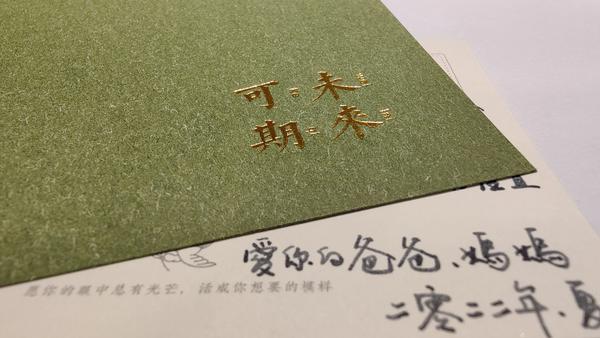 未來
可期
愛你的爸爸、媽媽
愿你的眼中总有光芒，活成你想要的模样
二零二二年.夏